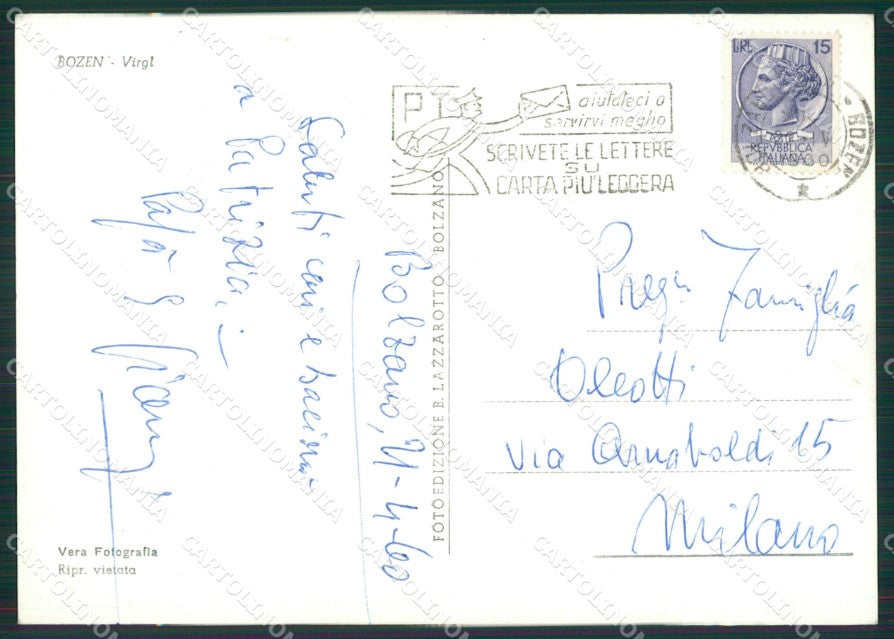 BOZEN - Virgl
PT
aiutateci a
servirvi meglio
SCRIVETE LE LETTERE
SU
CARTA PIU' LEGGERA
LIRE 15
REPUBBLICA
ITALIANA
BOZEN
Bolzano, 21-4-60
Saluti cari e bacioni
a Patrizia,
Papà e
Preg. Famiglia
Oleotti
Via Arnaboldi 15
Milano
FOTOEDIZIONE B. LAZZAROTTO - BOLZANO
Vera Fotografia
Ripr. vietata
CARTOLINOMANIA